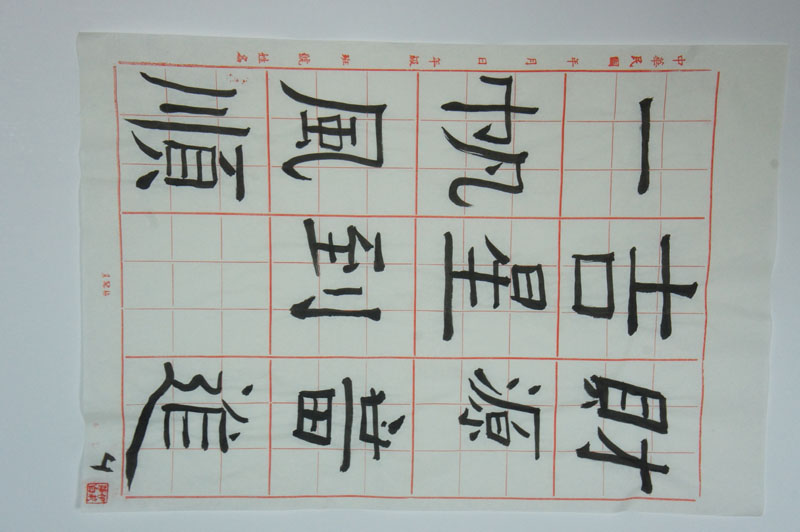 財源當進
吉星到
一帆風順
中華民國 年 月 日 年級 班 號 姓名